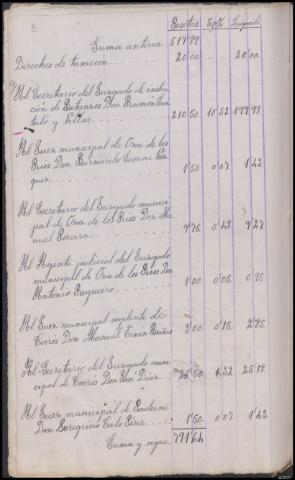 Pesetas 5p% Liquido
Suma anterior 517'79
Derechos de tasación 20'00 20'00
Al Secretario del Juzgado de instru-
cción de Betanzos Don Ramón San
taló y Villar 210'50 10'52 199'98
Al Juez municipal de Oza de los
Rios Don Bernardo
quez 1'50 0'07 1'43
Al Secretario del Juzgado munici-
pal de Oza de los Rios Don Ma-
nuel Pereira 9'76 0'48 9'27
Al Agente judicial del Juzgado
municipal de Oza de los Rios Don
Antonio 1'00 0'05 0'95
Al Juez municipal suplente de
Cesuras Don Manuel 3'00 0'15 2'85
Al Secretario del Juzgado muni-
cipal de Don José Diaz 26'50 1'32 25'18
Al Juez municipal de Paderne
Don Peregrino Calo Pérez 1'50 0'07 1'43
Suma y sigue 791'64